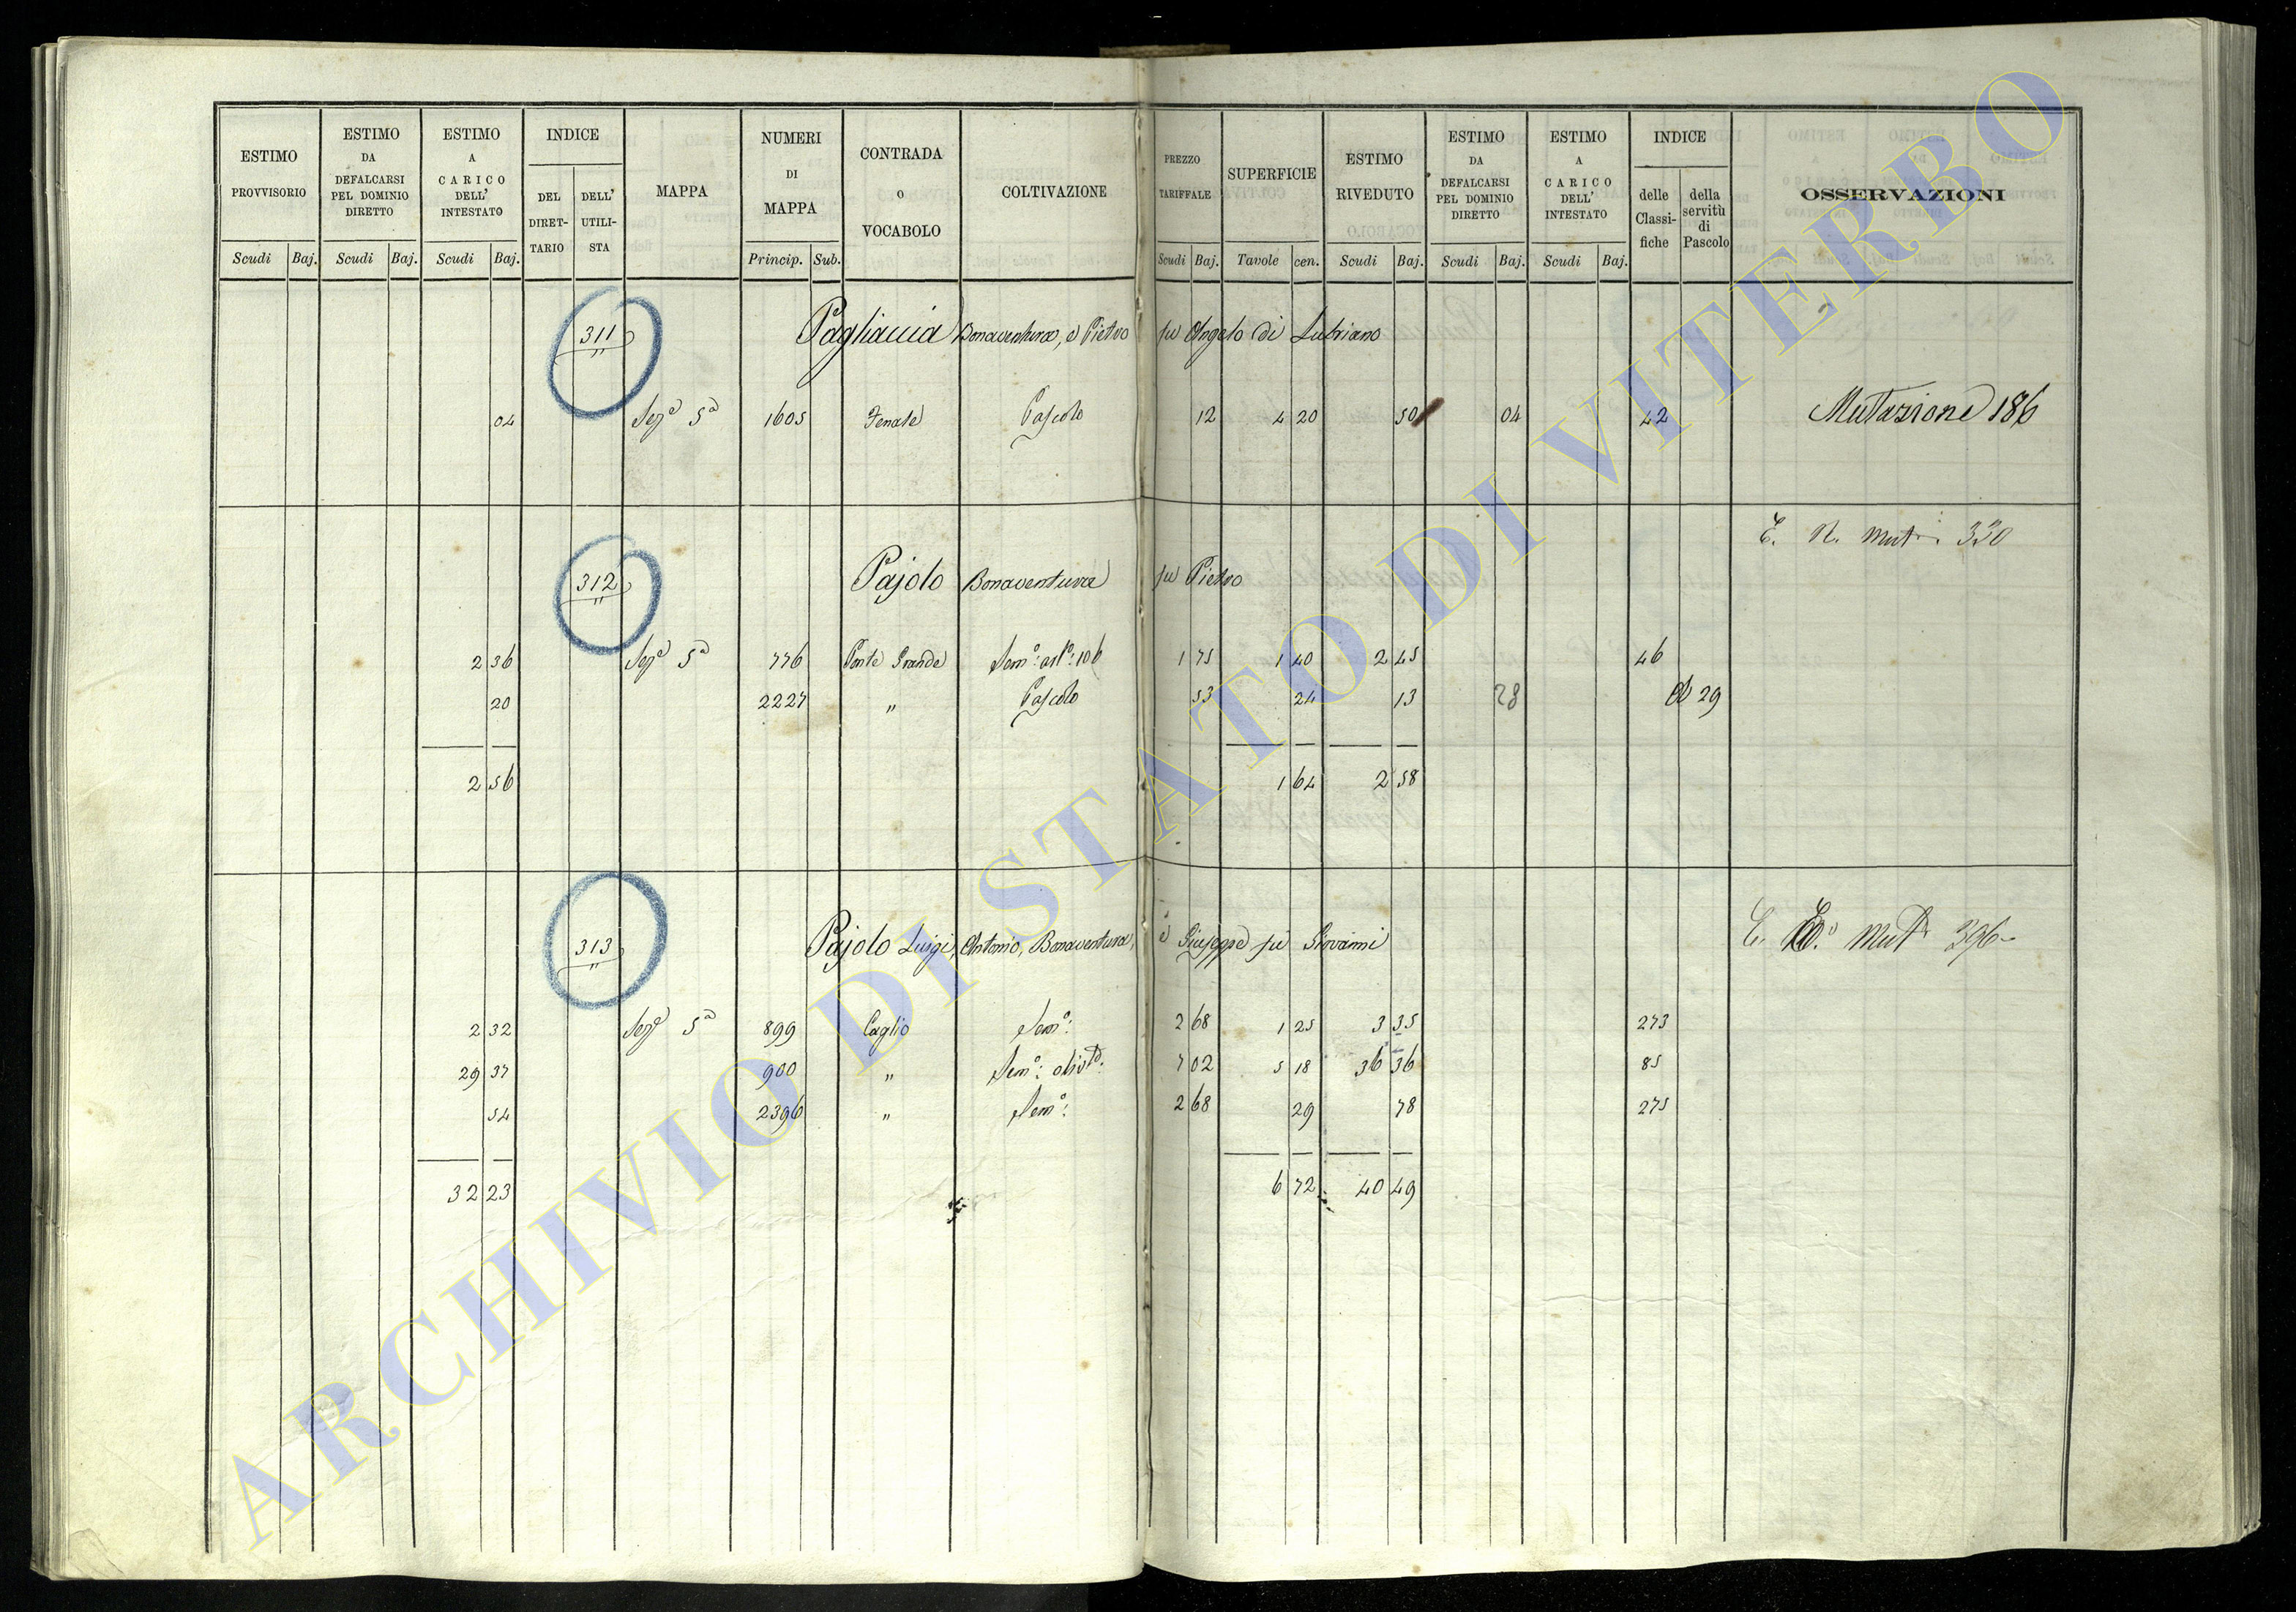 ESTIMO PROVVISORIO | ESTIMO DA DEFALCARSI PEL DOMINIO DIRETTO | ESTIMO A CARICO DELL' INTESTATO | INDICE DEL DIRETTARIO | DELL' UTILISTA | MAPPA | NUMERI DI MAPPA | CONTRADA O VOCABOLO | COLTIVAZIONE | PREZZO TARIFFALE | SUPERFICIE | ESTIMO RIVEDUTO | ESTIMO DA DEFALCARSI PEL DOMINIO DIRETTO | ESTIMO A CARICO DELL' INTESTATO | INDICE delle Classifiche | della servitù di Pascolo | OSSERVAZIONI
Scudi Baj. Scudi Baj. Scudi Baj. Princip. Sub. Scudi Baj. Tavole cen. Scudi Baj. Scudi Baj. Scudi Baj.
311 Pagliaccia Bonaventura, e Pietro fu Angelo di Lubriano
04 Seze 5a 1605 Fenate Pascolo 12 4 20 50 04 42 Mutazione 186
E. N. Mut. 330
312 Pajolo Bonaventura fu Pietro
2 36 Seze 5a 776 Ponte Grande Semo: 106 1 75 1 40 2 45 46
20 2227 " Pascolo 53 24 13 28 29
2 56 1 64 2 58
313 Pajolo Luigi, Antonio, Bonaventura, e Giuseppe fu Giovanni E. Mut. 396
2 32 Seze 5a 899 Caglio Semo: 2 68 1 25 3 35 273
29 37 900 " Semo: olivto: 7 02 5 18 36 36 85
54 2396 " Semo: 2 68 29 78 275
32 23 6 72 40 49
ARCHIVIO DI STATO DI VITERBO